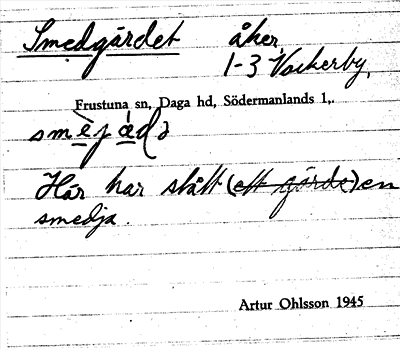 Smedgärdet åker,
1-3 Vackerby,
Frustuna sn, Daga hd, Södermanlands l,.
Här har stått (ett gärde) en
smedja.
Artur Ohlsson 1945